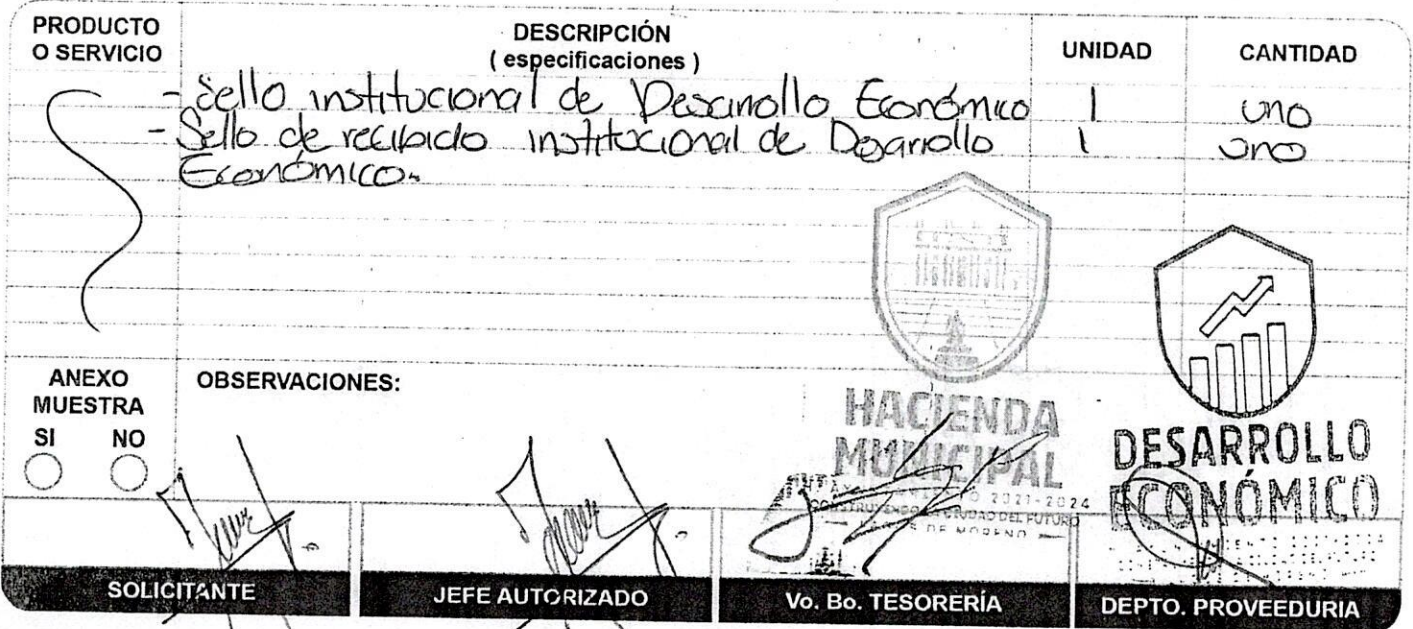 PRODUCTO O SERVICIO
DESCRIPCIÓN
( especificaciones )
UNIDAD
CANTIDAD
- Sello institucional de Desarrollo Económico 1 uno
- Sello de recibido institucional de Desarrollo 1 uno
Económico.
ANEXO MUESTRA
SI NO
OBSERVACIONES:
HACIENDA
MUNICIPAL
2021-2024
DEL FUTURO
DE MORENO
DESARROLLO
ECONÓMICO
SOLICITANTE
JEFE AUTORIZADO
Vo. Bo. TESORERÍA
DEPTO. PROVEEDURIA